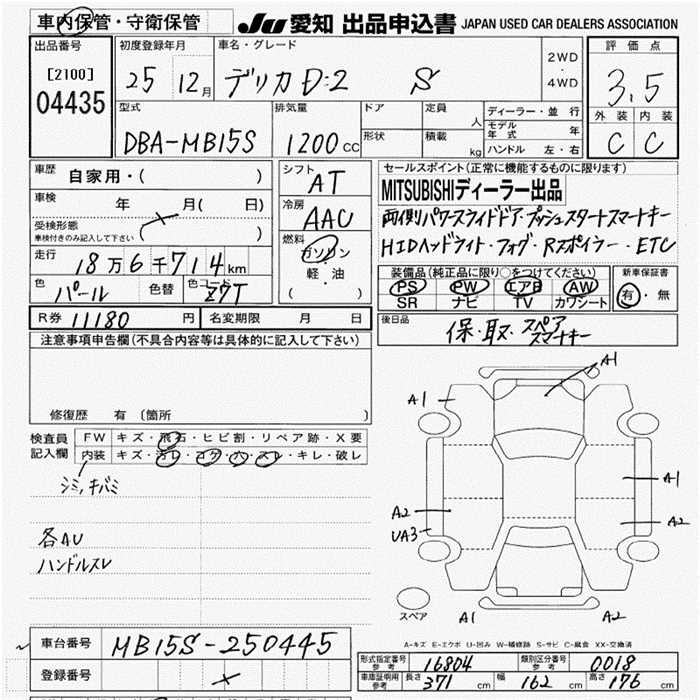 車内保管・守衛保管 JU 愛知 出品申込書 JAPAN USED CAR DEALERS ASSOCIATION
出品番号 初度登録年月 車名・グレード 評価点
[2100] 25 12月 デリカD:2 S 2WD・4WD 3.5
04435
型式 排気量 ドア 定員 人 ディーラー・並行 外装 内装
DBA-MB15S 1200CC 形状 積載 kg モデル年式 年 C C
ハンドル 左・右
車歴 自家用・( ) シフト AT セールスポイント(正常に機能するものに限ります)
車検 年 月( 日) 冷房 AAC MITSUBISHIディーラー出品
受検形態 燃料 両側パワースライドドア・プッシュスタートスマートキー
車検付きのみ記入して下さい ( ) ガソリン・軽・油 HIDヘッドライト・フォグ・Rスポイラー・ETC
走行 18万6千714km ( )
色 パール 色替 色コード Z7T
装備品(純正品に限り○をつけてください) 新車保証書
PS PW エアB AW 有・無
SR ナビ TV カワシート
R券 11180円 名変期限 月 日
後日品 保・取・スペアスマートキー
注意事項申告欄(不具合内容等は具体的に記入して下さい)
修復歴 有 (箇所 )
検査員記入欄 FW キズ・飛石・ヒビ割・リペア跡・X要
内装 キズ・汚レ・コゲ・穴・スレ・キレ・破レ
シミ,キバミ
各AU
ハンドルスレ
A1
A1
A1
A2 A2
UA3
スペア A1 A2
A-キズ E-エクボ U-凹み W-補修跡 S-サビ C-腐食 XX-交換済
車台番号 MB15S-250445
登録番号 X
形式指定番号 参考 16804 類別区分番号 参考 0018
車庫証明用 参考 長さ 371cm 幅 162cm 高さ 176cm